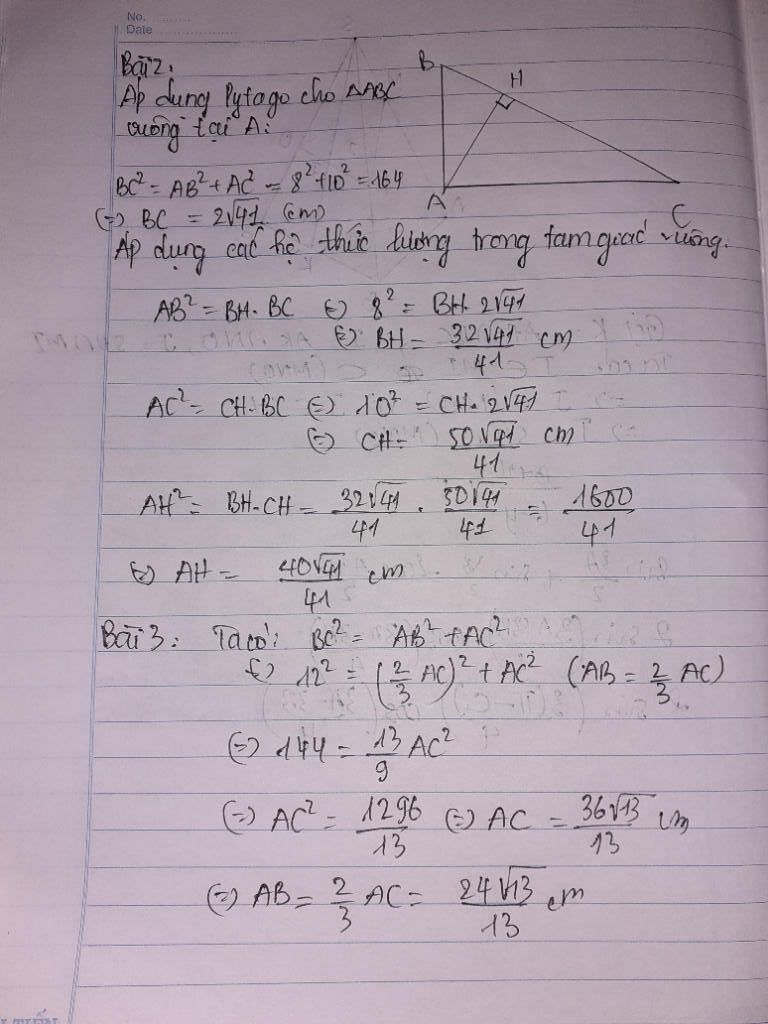 No. ............
Date ......................
Bài 2:
Áp dụng Pytago cho ΔABC
vuông tại A:
BC² = AB² + AC² = 8² + 10² = 164
(=) BC = 2√41 (cm)
B
H
A
C
Áp dụng các hệ thức lượng trong tam giác vuông.
AB² = BH. BC (=) 8² = BH. 2√41
(=) BH = 32√41/41 cm
AC² = CH.BC (=) 10² = CH. 2√41
(=) CH = 50√41/41 cm
AH² = BH.CH = 32√41/41 . 50√41/41 = 1600/41
(=) AH = 40√41/41 cm
Bài 3: Ta có: BC² = AB² + AC²
(=) 12² = (2/3 AC)² + AC² (AB = 2/3 AC)
(=) 144 = 13/9 AC²
(=) AC² = 1296/13 (=) AC = 36√13/13 cm
(=) AB = 2/3 AC = 24√13/13 cm